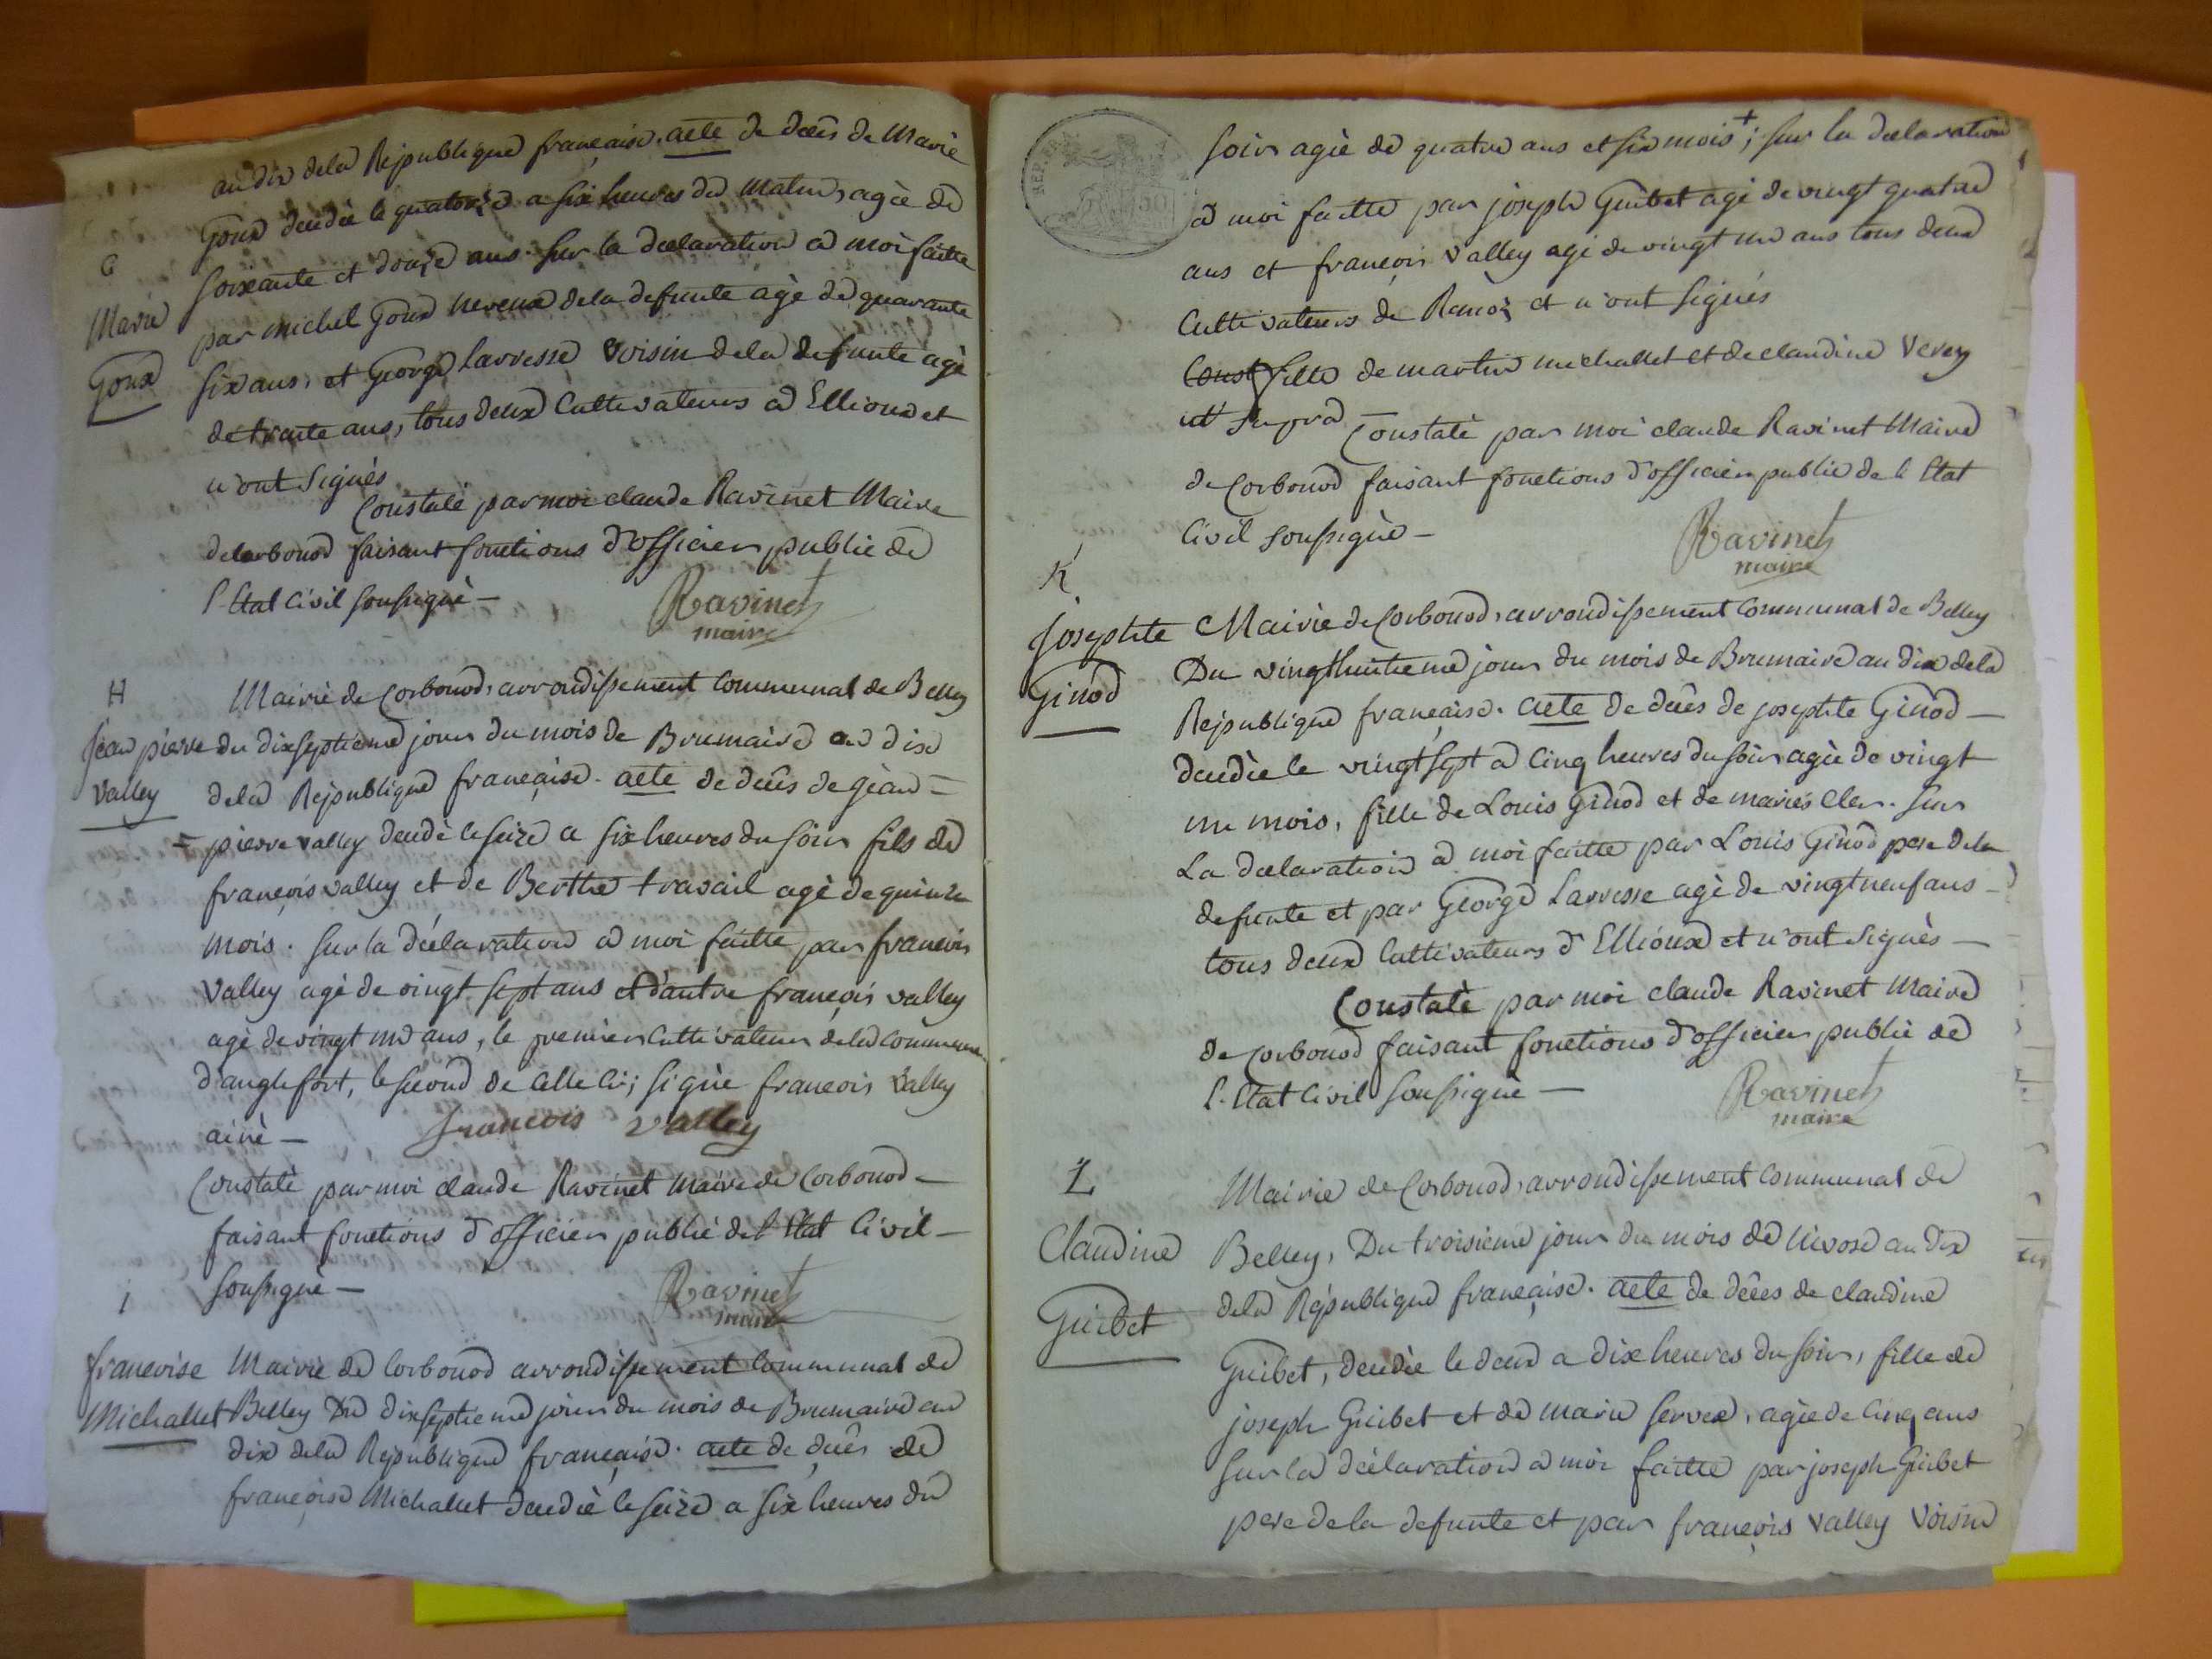 an dix dela République française. acte de décès de Marie
Goux décédée le quatorze a six heures du Matin, agée de
G
soixante et douze ans. sur la déclaration a moi faitte
Marie
par michel Goux neveux dela defunte agé de quarante
Goux
six ans, et George Larvesse voisin dela defunte agé
de trante ans, tous deux Cultivateurs a Ellioux et
n'ont Signés
Constaté par moi claude Ravinet Maire
de Corbonod faisant fonctions d'officier public de
l'Etat Civil soussigné —
Ravinet
maire
H
Mairie de Corbonod, arrondissement Communal de Belley
Jean pierre
du dixseptieme jour du mois de Brumaire an dix
Valley
dela République française. acte de décès de géan =
= pierre valley décédé le seize a six heures du soir fils de
françois valley et de Berthe travail agé de quinze
mois. sur la déclaration a moi faitte par francois
Valley agé de vingt sept ans et d'autre françois valley
agé de vingt un ans, le premier Cultivateur dela commune
d'anglefort, le second de Celle Ci; signé francois valley
ainé —
francois valley
Constaté par moi claude Ravinet Maire de Corbonod —
faisant fonctions d'officier public de l'Etat Civil —
soussigné —
Ravinet
maire
i
francoise
Mairie de Corbonod arrondissement Communal de
Michallet
Belley Du dixseptieme jour du mois de Brumaire an
dix dela République française. acte de décès de
françoise Michallet décédée le seize a six heures du
soir agée de quatre ans et six mois +; sur la déclaration
a moi faitte par joseph Guibet agé de vingt quatre
ans et françois valley agé de vingt un ans tous deux
Cultivateurs de et n'ont signés
Const fille de martin michallet et de claudine Verey
ut supra Constaté par moi claude Ravinet Maire
de Corbonod faisant fonctions d'officier public de l'Etat
Civil soussigné —
Ravinet
maire
K
josephte
Mairie de Corbonod, arrondissement Communal de Belley
Ginod
Du vingthuitieme jour du mois de Brumaire an dix dela
République française. acte de décès de josephte Ginod —
décédée le vingt sept a Cinq heures du soir agée de vingt
un mois, fille de Louis Ginod et de marie Cler. sur
La déclaration a moi faitte par Louis Ginod pere dela
defunte et par George Larvesse agé de vingt neuf ans —
tous deux Cultivateurs d'Ellioux et n'ont signés —
Constaté par moi claude Ravinet Maire
de Corbonod faisant fonctions d'officier public de
l'Etat Civil soussigné —
Ravinet
maire
L
Mairie de Corbonod, arrondissement Communal de
Claudine
Belley, Du troisieme jour du mois de Nivose an dix
Guibet
dela République française. acte de décès de claudine
Guibet, décédée le deux a dix heures du soir, fille de
joseph Guibet et de marie servex, agée de Cinq ans
sur la déclaration a moi faitte par joseph Guibet
pere dela defunte et par françois valley voisin